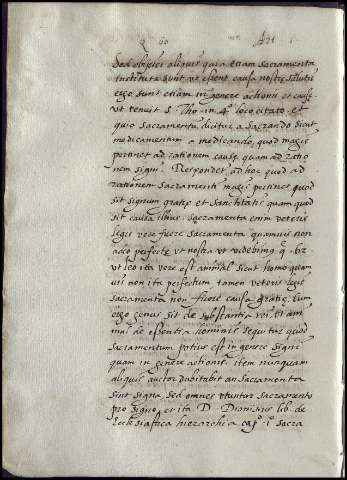 q. 60 Art. 1.
Sed obijciet aliquis quia etiam sacramenta
instituta sunt ut essent causa nostrę salutis
ergo sunt etiam in genere actionis et causę
ut tenuit S. Tho. in 4º loco citato. et
quia sacramentū dicitur a sacrando sicut
medicamentum a medicando, quod magis
pertinet ad rationem causę quam ad ratio
nem signi. Respondet ad hoc quod ad
rationem sacramenti magis pertinet quod
sit signum gratię et sanctitatis quam quod
sit causa illius. sacramenta enim veteris
legis vere fuere sacramenta quamuis non
adeo perfecte ut nostra ut videbimus q. 62
ut leo ita vere est animal sicut homo quam
uis non ita perfectum tamen veteris legis
sacramenta non fuere causa gratię. Cum
ergo genus sit de substantia rei ut ani
mal de essentia hominis sequitur quod
sacramentum potius est in genere signi
quam in genere actionis. item nunquam
aliquis auctor dubitabit an sacramenta
sint signa, sed omnes utuntur sacramento
pro signo. et ita D. Dionisius lib. de
Ecclesiastica hierarchia capº. 1º sacra